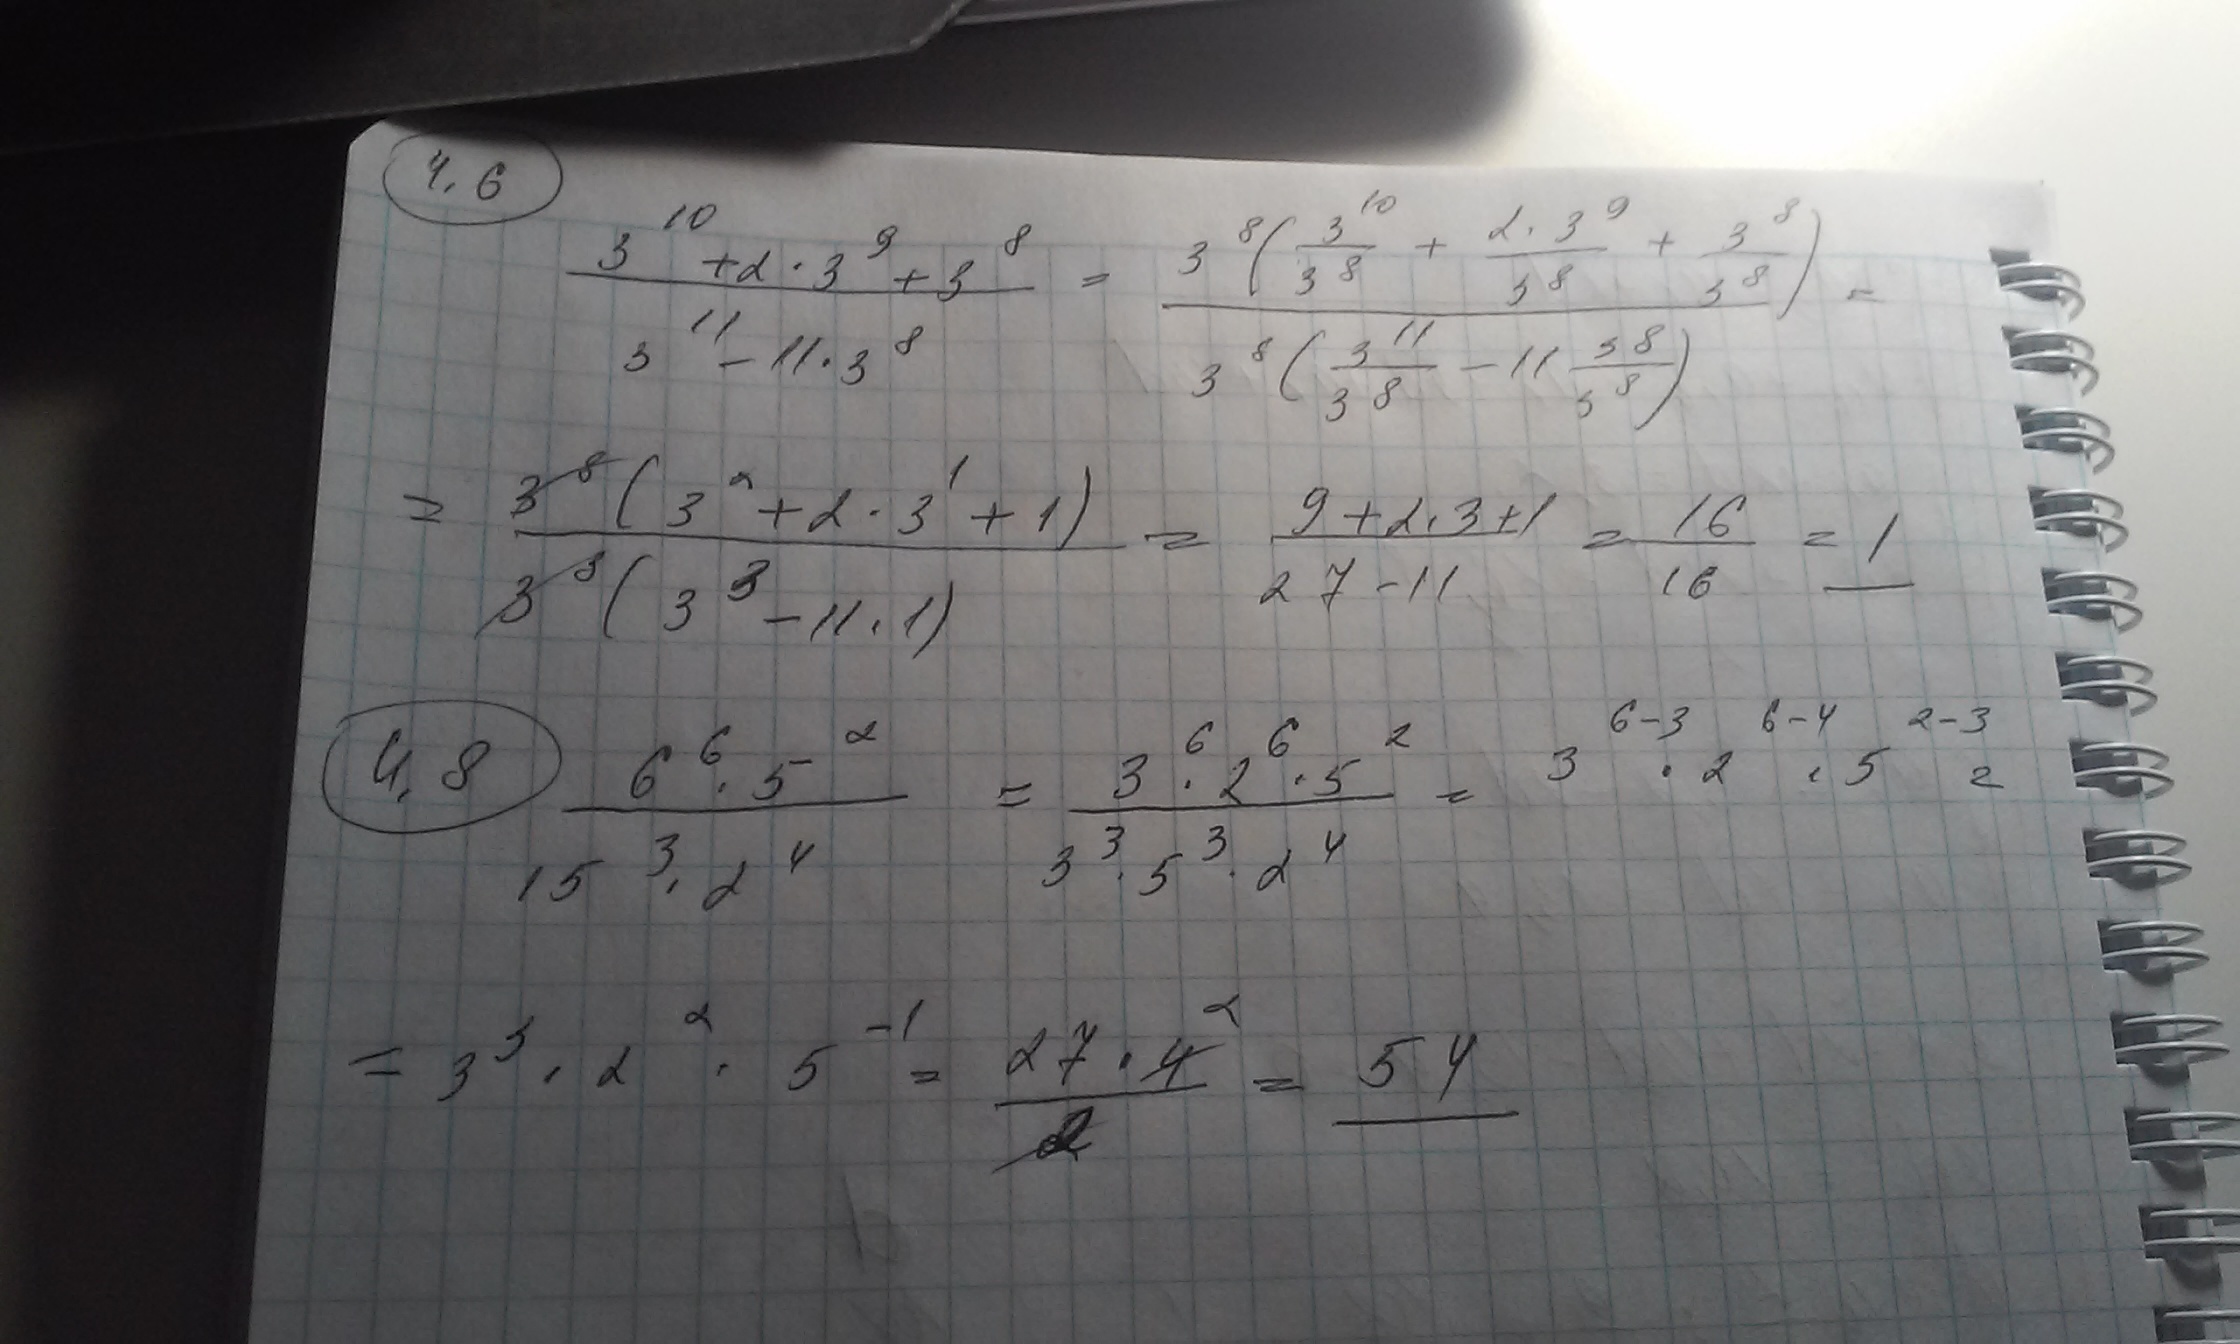 4.6
(3^10 + 2·3^9 + 3^8) / (3^11 - 11·3^8) = 3^8(3^10/3^8 + 2·3^9/3^8 + 3^8/3^8) / 3^8(3^11/3^8 - 11 3^8/3^8) =
= 3^8(3^2 + 2·3^1 + 1) / 3^8(3^3 - 11·1) = (9+2·3+1) / (27-11) = 16/16 = 1
4.8 (6^6·5^2) / (15^3·2^4) = (3^6·2^6·5^2) / (3^3·5^3·2^4) = 3^(6-3)·2^(6-4)·5^(2-3) =
= 3^3·2^2·5^-1 = (27·4^2) / 2 = 54